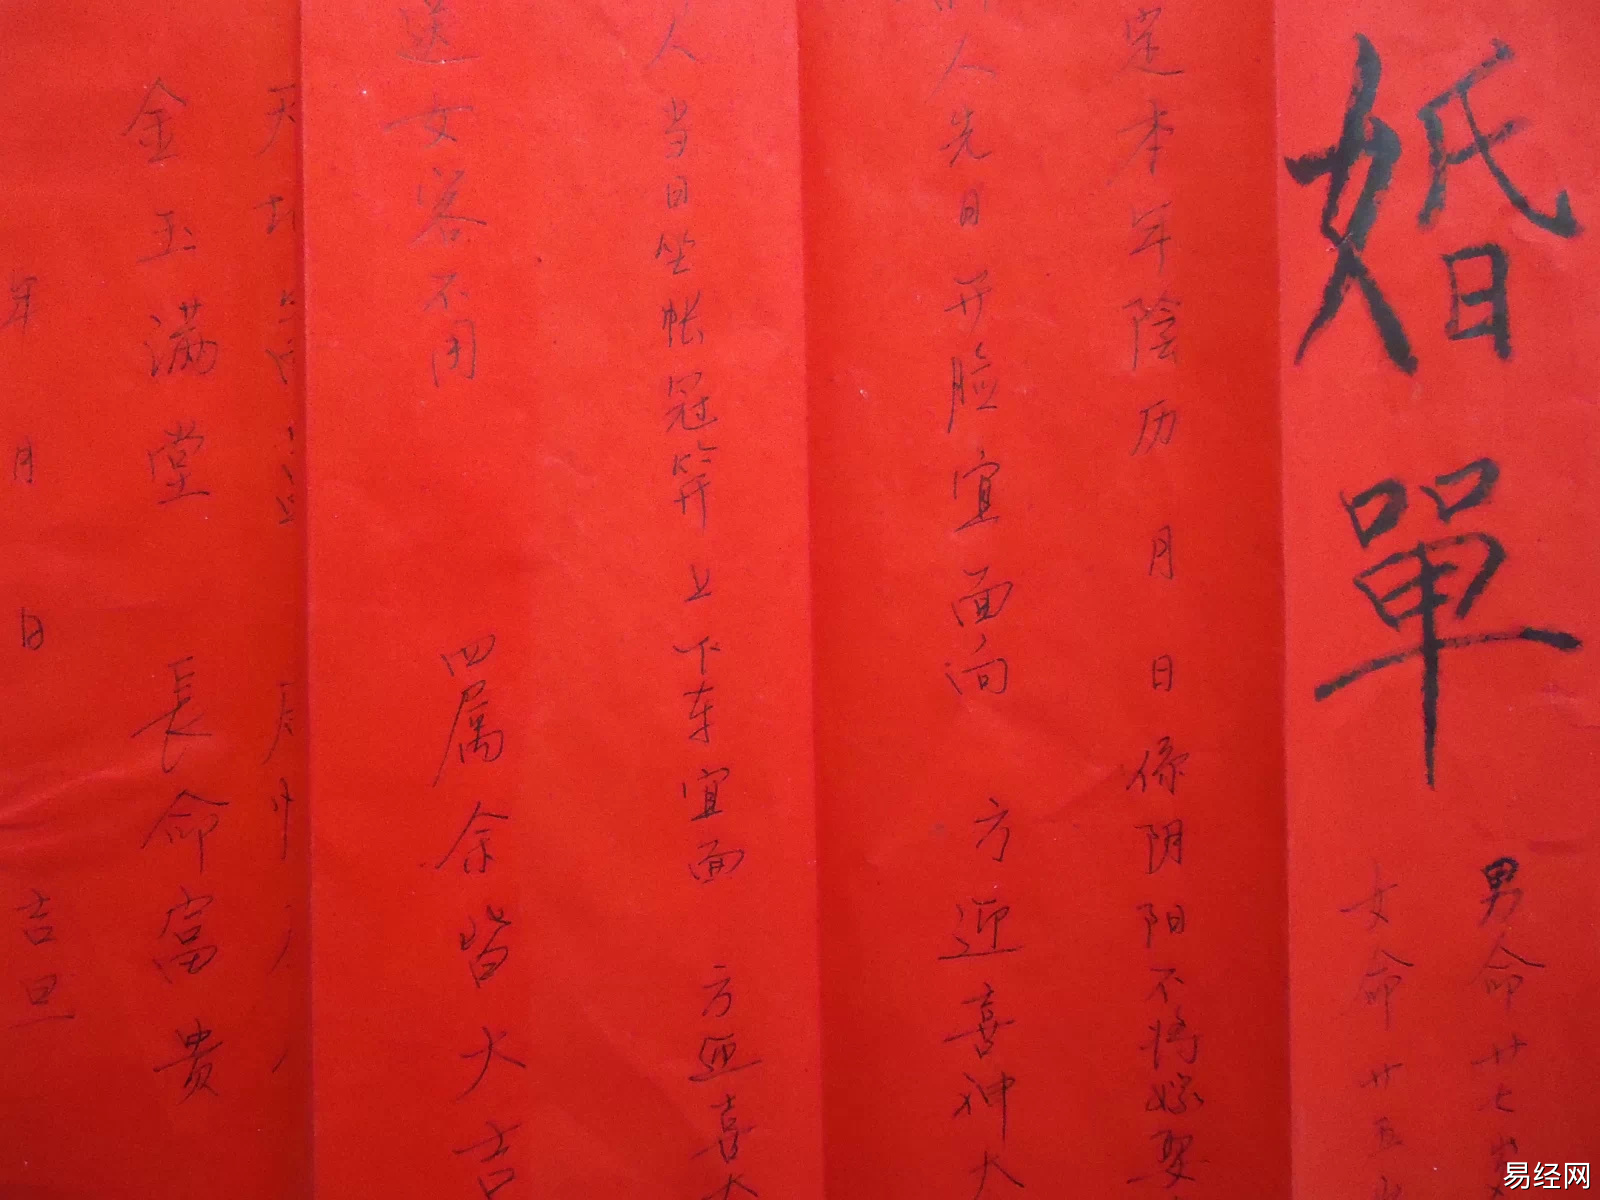 婚單
男命廿七岁
女命廿五
定本年陰历 月 日係阴阳不将嫁娶
人先日开脸宜面向 方迎喜神大
人当日坐帐冠笄上下车宜面 方迎喜
送女客不用 四属余皆大吉
天地
金玉满堂 長命富贵
年 月 日 吉旦
易经网